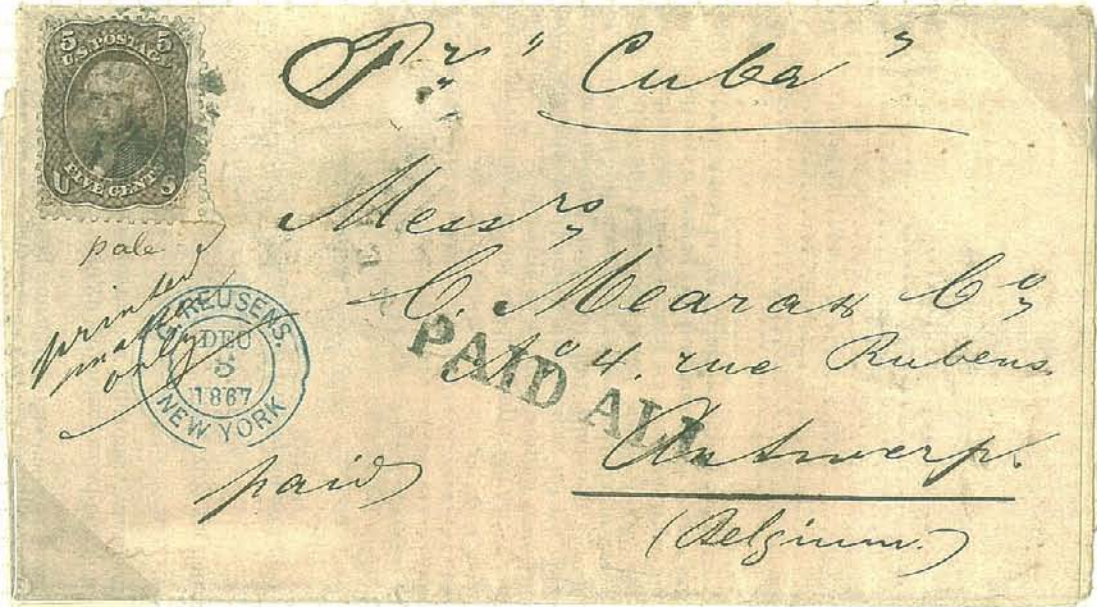 5 5
U.S. POSTAGE
FIVE CENTS
U S
Pr " Cuba "
pale
printed
matter
only
Messrs
C. Mearax Co
PAID ALL
No 4. rue Rubens.
Antwerp.
(Belgium.)
G. REUSENS.
DEC
5
1867
NEW YORK
paid